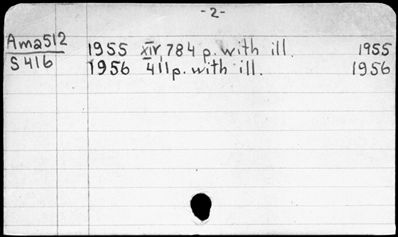 -2-
Ama512 1955 XIV, 784 p. with ill. 1955
S416 1956 411p. with ill. 1956